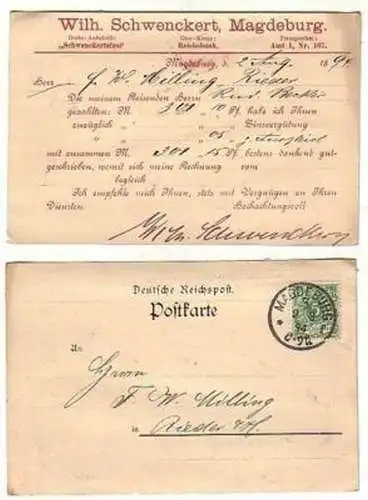 Wilh. Schwenckert, Magdeburg.
Draht-Aufschrift: Giro-Konto: Fernsprecher:
„Schwenckertsius“ Reichsbank. Amt 1, Nr. 167.
Magdeburg, d. 2 Aug. 189
Herr F. W. Milling Rieder
Die meinem Reisenden Herrn Rud.
gezahlten: M 301 10 Pf. habe ich Ihnen
zuzüglich " " Zinsvergütung
" " 05 "
mit zusammen M. 301 15 Pf. bestens dankend gut-
geschrieben, womit sich meine Rechnung vom
begleich
Ich empfehle mich Ihnen, stets mit Vergnügen zu Ihren
Diensten. Hochachtungsvoll
Wilh. Schwenckert
Deutsche Reichspost.
Postkarte
MAGDEBURG
An
Herrn
F. W. Milling
in Rieder